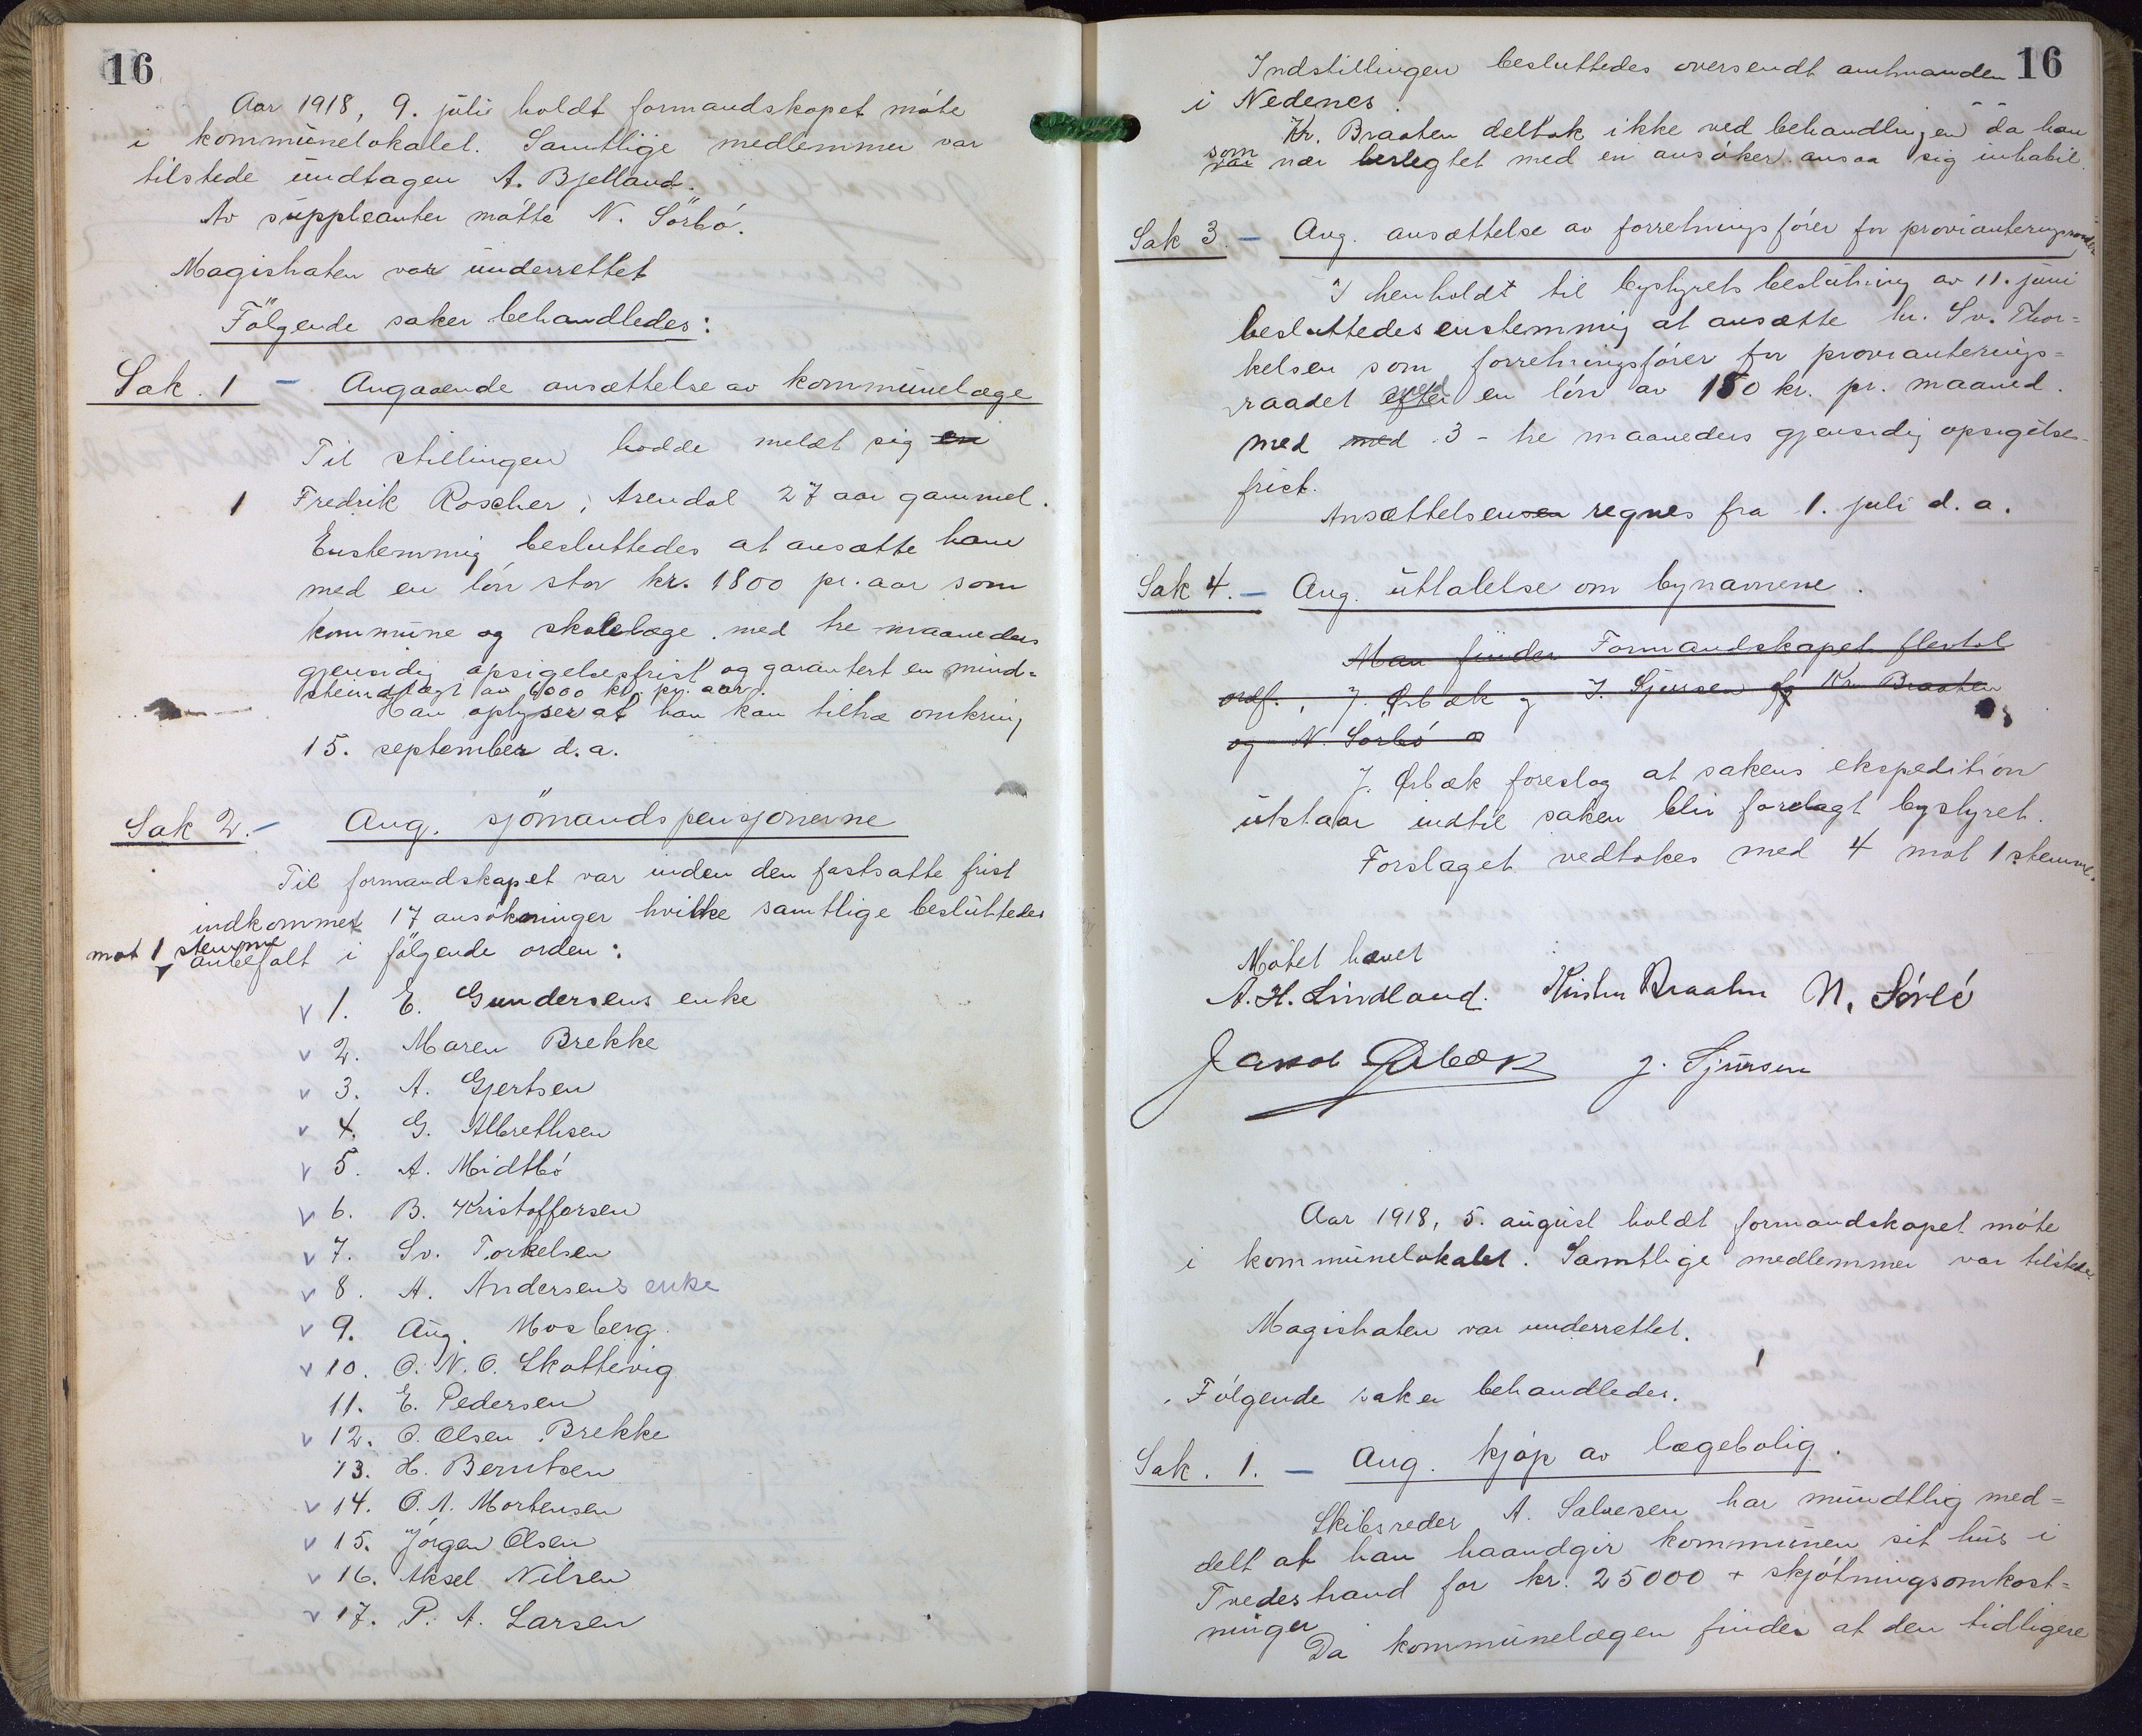 16
Aar 1918, 9. juli holdt formandskapet møte
i kommunelokalet. Samtlige medlemmer var
tilstede undtagen A. Bjelland.
Av suppleanter møtte N. Sørbø.
Magistraten var underrettet
Følgende saker behandledes:
Sak. 1 – Angaaende ansættelse av kommunelæge
Til stillingen hadde meldt sig en
1 Fredrik Roscher, Arendal 27 aar gammel.
Enstemmig besluttedes at ansætte ham
med en løn stor kr. 1800 pr. aar som
kommune og skolelæge med tre maaneders
gjensidig opsigelsesfrist og garantert en mind=
steindtægt av 6000 kr. pr. aar.
Han oplyser at han kan tiltræ omkring
15. september d.a.
Sak 2. – Ang. sjømandspensjonerne
Til formandskapet var inden den fastsatte frist
indkommet 17 ansøkninger hvilke samtlige besluttedes
mot 1 stemme
anbefalt i følgende orden:
v 1. E. Gundersens enke
v 2. Maren Brekke
v 3. A. Gjertsen
v 4. G. Albrethsen
v 5. A. Midtbø
v 6. B. Kristoffersen
v 7. Sv. Torkelsen
v 8. A. Andersens enke
v 9. Aug. Mosberg.
v 10. O. N. O. Skottevig
11. E. Pedersen
v 12. O. Olsen Brekke
13. H. Berntsen
v 14. O. A. Mortensen
v 15. Jørgen Olsen
v 16. Aksel Nilsen
v 17. P. A. Larsen
16
Indstillingen besluttedes oversendt amtmanden
i Nedenes.
Kr. Braaten deltok ikke ved behandlingen da han
som
var nær beslegtet med en ansøker ansaa sig inhabil
Sak 3. – Ang. ansættelse av forretningsfører for provianteringsraadet
I henholdt til bystyrets beslutning av 11. juni
besluttedes enstemmig at ansætte hr. Sv. Thor=
kelsen som forretningsfører for provianterings=
raadet efter med en løn av 150 kr. pr. maaned.
med med 3 – tre maaneders gjensidig opsigelses-
frist.
Ansættelsen regnes fra 1. juli d. a.
Sak 4. – Ang. uttalelse om bynavnene.
Man finder Formandskapet flertal
ordf., J. Ørbæk og J. Sjursen og Kr. Braaten
og N. Sørbø
J. Ørbæk foreslog at sakens ekspedition
utstaar indtil saken blir forelagt bystyret.
Forslaget vedtokes med 4 mot 1 stemme.
Møtet hævet
A. H. Lindland. Kristen Braaten N. Sørbø
Jakob Ørbæk J. Sjursen
Aar 1918, 5. august holdt formandskapet møte
i kommunelokalet. Samtlige medlemmer var tilstede
Magistraten var underrettet.
Følgende saker behandledes.
Sak. 1. – Ang. kjøp av lægebolig.
Skibsreder A. Salvesen har mundtlig med=
delt at han haandgir kommunen sit hus i
Tvedestrand for kr. 25000 + skjøtningsomkost=
ninger
Da kommunelægen finder at den tidligere